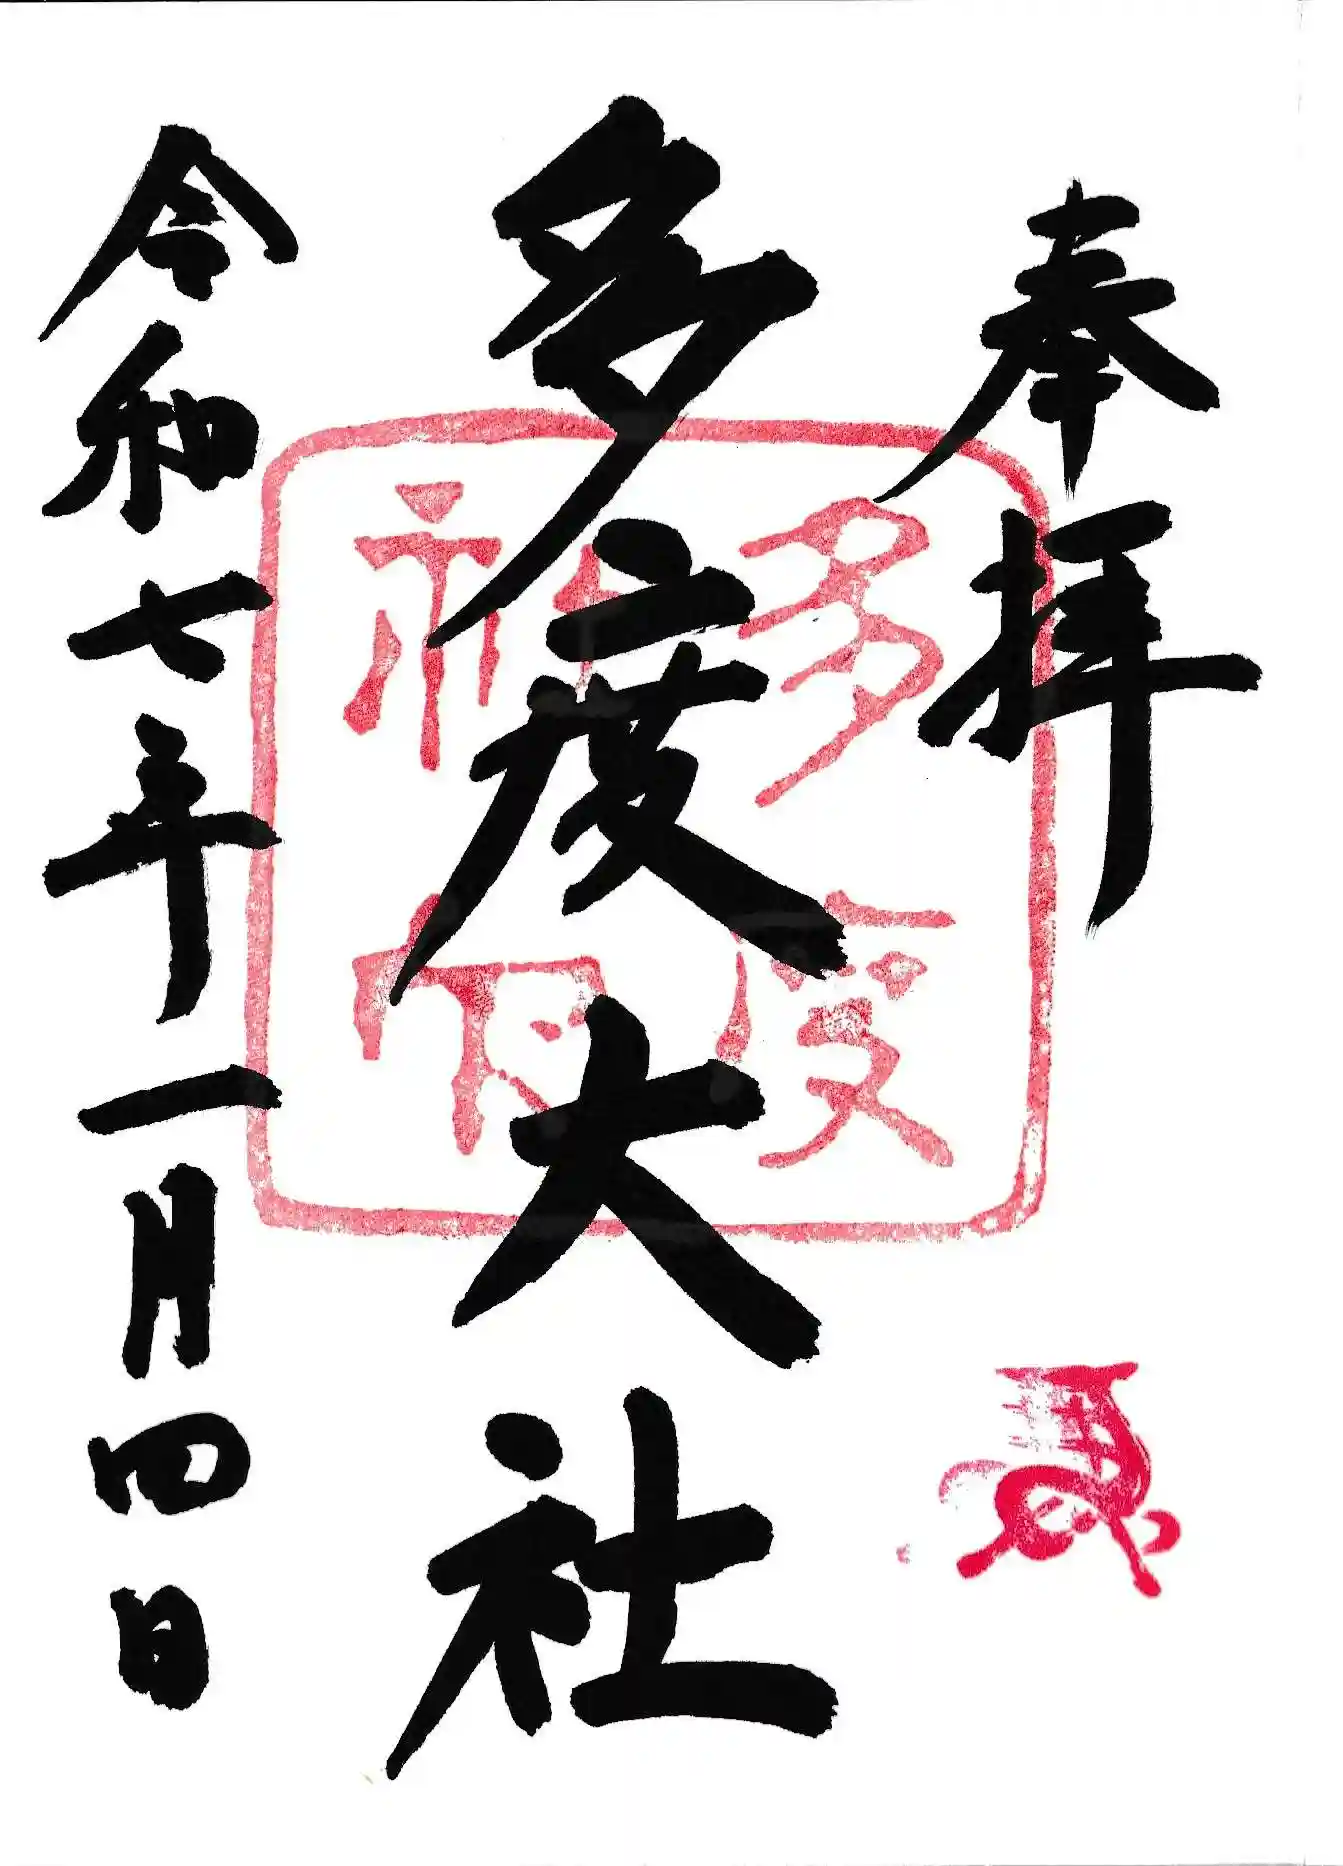 奉拝
多度大社
多度
神社
令和七年一月四日